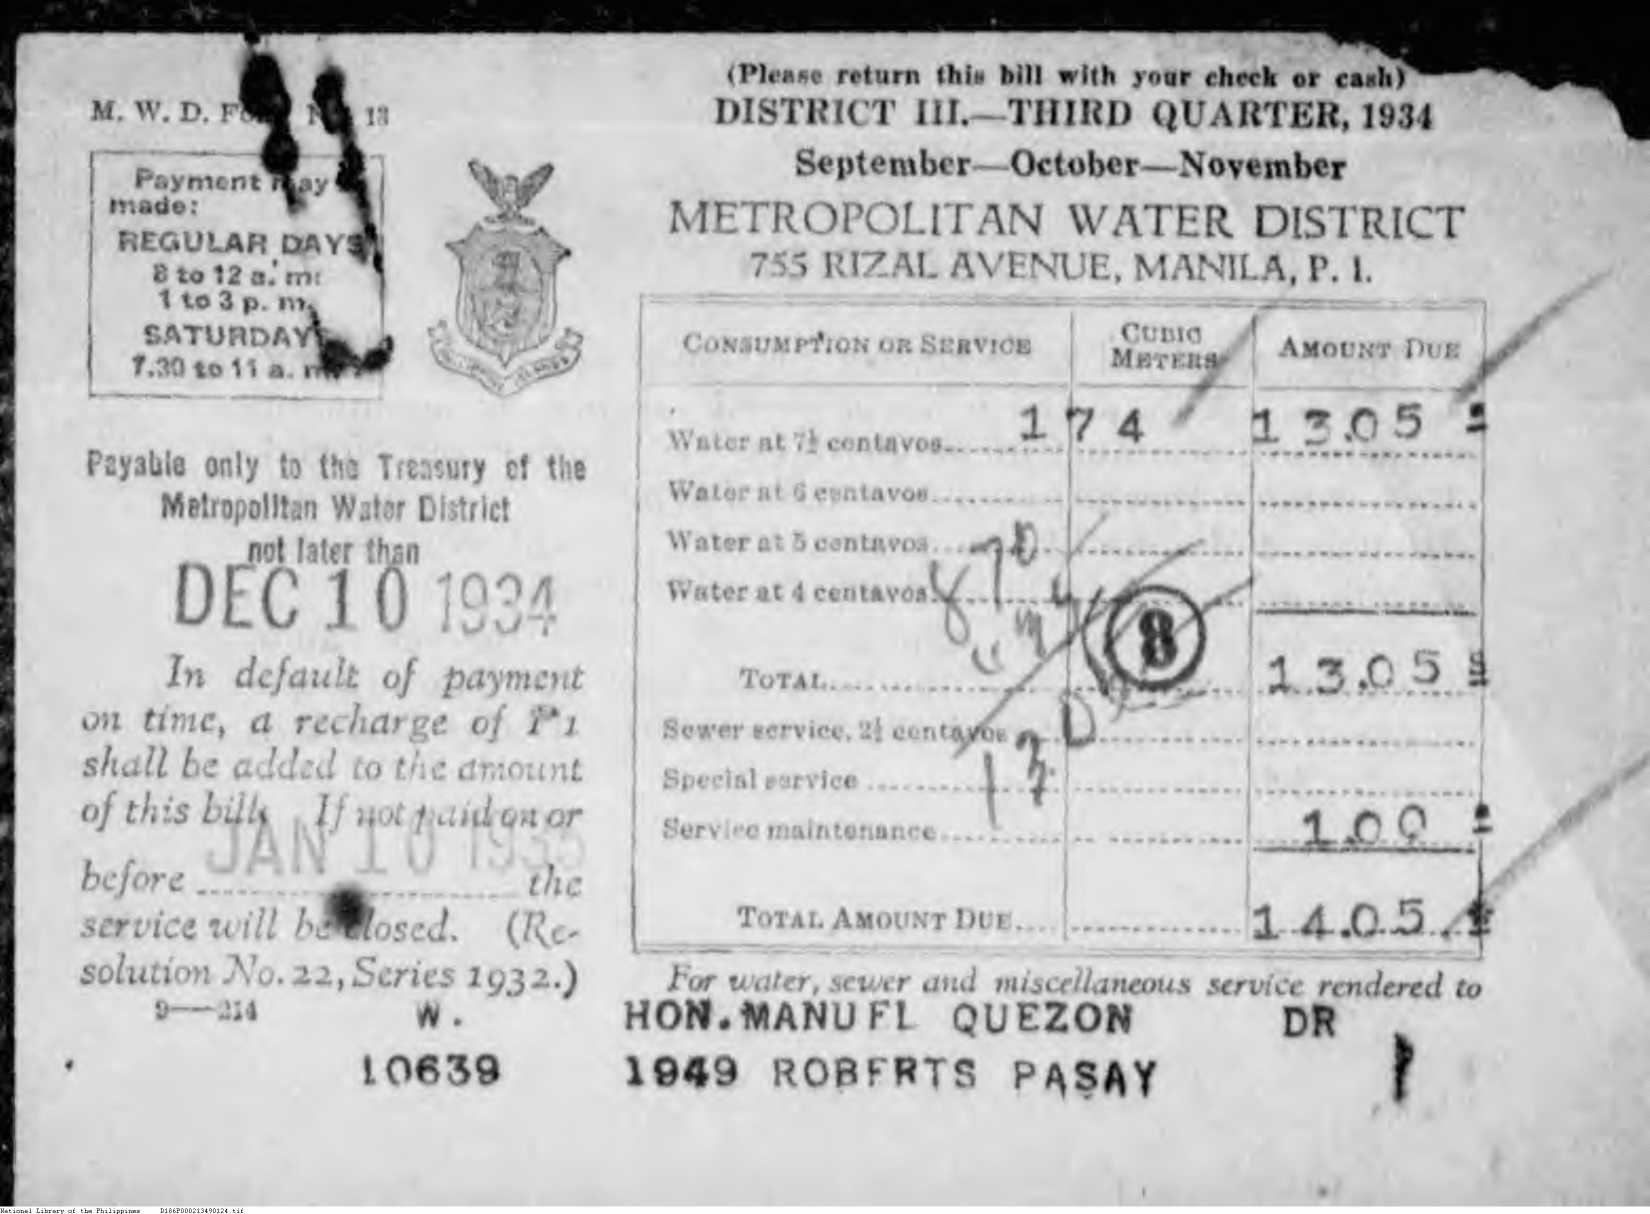 M. W. D. 13
Payment may
made:
REGULAR DAYS
8 to 12 a. m.
1 to 3 p. m.
SATURDAY
7.30 to 11 a. m.
Payable only to the Treasury of the
Metropolitan Water District
not later than
DEC 10 1934
In default of payment
on time, a recharge of ₱1
shall be added to the amount
of this bill. If not paid on or
JAN 10 1935
before the
service will be closed. (Re-
solution No. 22, Series 1932.)
9—214
W.
10639
(Please return this bill with your check or cash)
DISTRICT III.—THIRD QUARTER, 1934
September—October—November
METROPOLITAN WATER DISTRICT
755 RIZAL AVENUE, MANILA, P. I.
CONSUMPTION OR SERVICE CUBIC METERS AMOUNT DUE
Water at 7½ centavos 174 13.05
Water at 6 centavos
Water at 5 centavos
Water at 4 centavos
8
TOTAL 13.05 s
Sewer service, 2½ centavos
Special service
Service maintenance 1.00
TOTAL AMOUNT DUE 14.05
For water, sewer and miscellaneous service rendered to
HON. MANUEL QUEZON DR
1949 ROBERTS PASAY
National Library of the Philippines D186P000213490124.tif